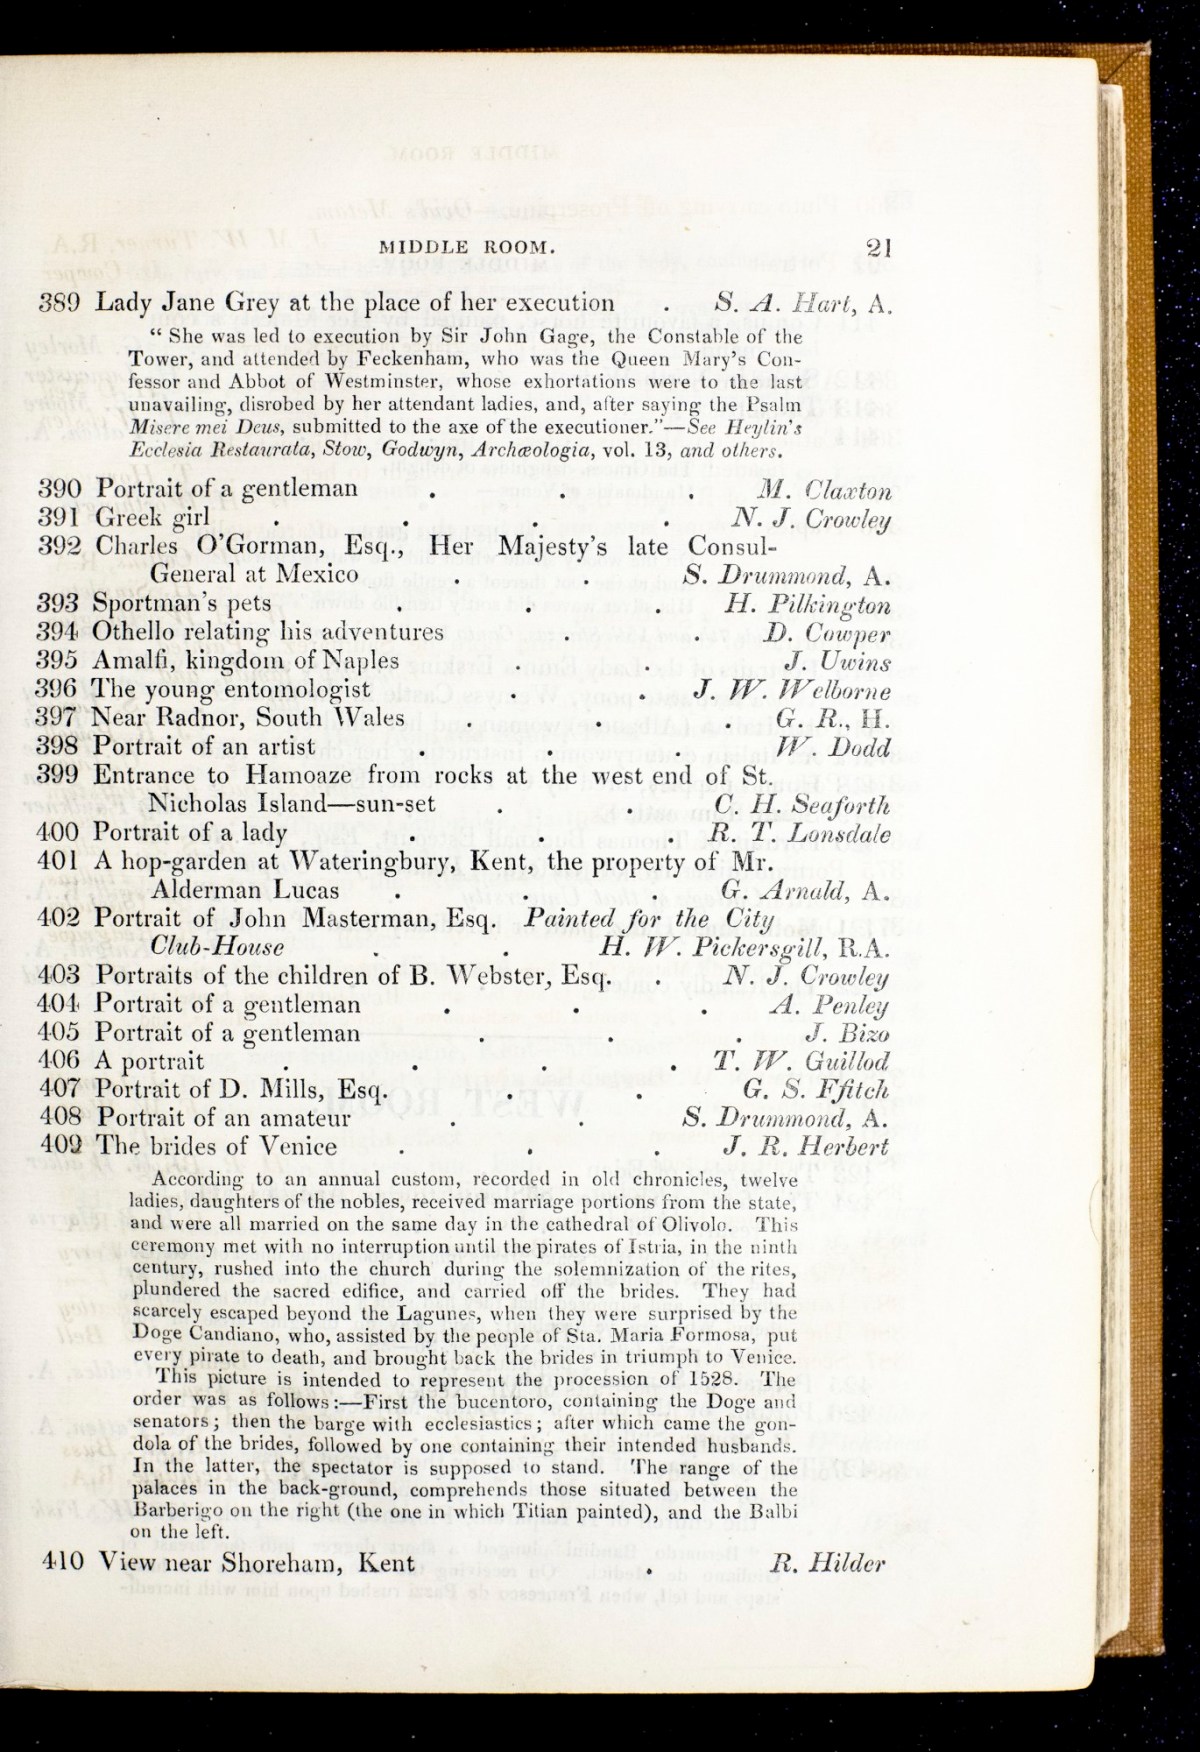 MIDDLE ROOM. 21
389 Lady Jane Grey at the place of her execution . S. A. Hart, A.
“ She was led to execution by Sir John Gage, the Constable of the
Tower, and attended by Feckenham, who was the Queen Mary’s Con-
fessor and Abbot of Westminster, whose exhortations were to the last
unavailing, disrobed by her attendant ladies, and, after saying the Psalm
Misere mei Deus, submitted to the axe of the executioner.”—See Heylin’s
Ecclesia Restaurata, Stow, Godwyn, Archæologia, vol. 13, and others.
390 Portrait of a gentleman . . . M. Claxton
391 Greek girl . . . . N. J. Crowley
392 Charles O’Gorman, Esq., Her Majesty’s late Consul-
General at Mexico . . S. Drummond, A.
393 Sportman’s pets . . . H. Pilkington
394 Othello relating his adventures . . D. Cowper
395 Amalfi, kingdom of Naples . . J. Uwins
396 The young entomologist . . J. W. Welborne
397 Near Radnor, South Wales . . . G. R., H.
398 Portrait of an artist . . . W. Dodd
399 Entrance to Hamoaze from rocks at the west end of St.
Nicholas Island—sun-set . . C. H. Seaforth
400 Portrait of a lady . . . R. T. Lonsdale
401 A hop-garden at Wateringbury, Kent, the property of Mr.
Alderman Lucas . . . G. Arnald, A.
402 Portrait of John Masterman, Esq. Painted for the City
Club-House . . H. W. Pickersgill, R.A.
403 Portraits of the children of B. Webster, Esq. . N. J. Crowley
404 Portrait of a gentleman . . . A. Penley
405 Portrait of a gentleman . . . J. Bizo
406 A portrait . . . . T. W. Guillod
407 Portrait of D. Mills, Esq. . . G. S. Ffitch
408 Portrait of an amateur . . S. Drummond, A.
409 The brides of Venice . . . J. R. Herbert
According to an annual custom, recorded in old chronicles, twelve
ladies, daughters of the nobles, received marriage portions from the state,
and were all married on the same day in the cathedral of Olivolo. This
ceremony met with no interruption until the pirates of Istria, in the ninth
century, rushed into the church during the solemnization of the rites,
plundered the sacred edifice, and carried off the brides. They had
scarcely escaped beyond the Lagunes, when they were surprised by the
Doge Candiano, who, assisted by the people of Sta. Maria Formosa, put
every pirate to death, and brought back the brides in triumph to Venice.
This picture is intended to represent the procession of 1528. The
order was as follows:—First the bucentoro, containing the Doge and
senators; then the barge with ecclesiastics; after which came the gon-
dola of the brides, followed by one containing their intended husbands.
In the latter, the spectator is supposed to stand. The range of the
palaces in the back-ground, comprehends those situated between the
Barberigo on the right (the one in which Titian painted), and the Balbi
on the left.
410 View near Shoreham, Kent . R. Hilder